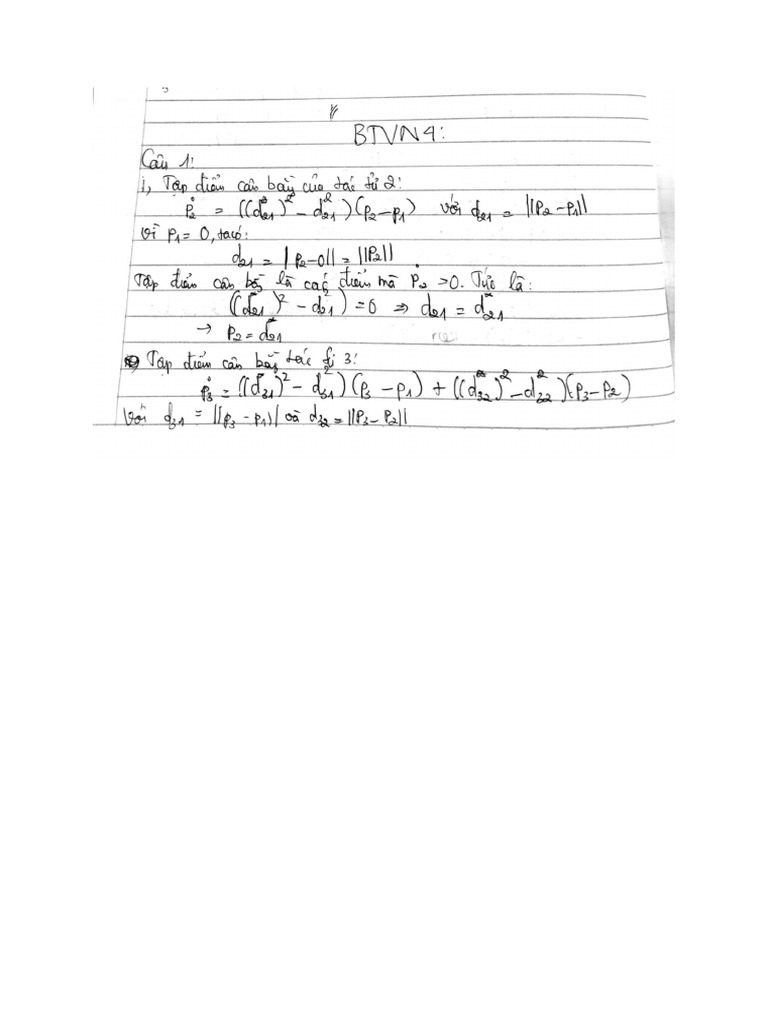 BTVN 4:
Câu 1:
i, Tập điểm cân bằng của tác tử 2:
ṗ₂ = ((d*₂₁)² - d₂₁²)(p₂ - p₁) với d₂₁ = ||p₂ - p₁||
vì p₁ = 0, ta có:
d₂₁ = |p₂ - 0|| = ||p₂||
Tập điểm cân bằng là các điểm mà ṗ₂ = 0. Tức là:
((d*₂₁)² - d₂₁²) = 0 => d₂₁ = d*₂₁
→ p₂ = d*₂₁
Tập điểm cân bằng tác tử 3:
ṗ₃ = ((d*₃₁)² - d₃₁²)(p₃ - p₁) + ((d*₃₂)² - d₃₂²)(p₃ - p₂)
Với d₃₁ = ||p₃ - p₁|| và d₃₂ = ||p₃ - p₂||